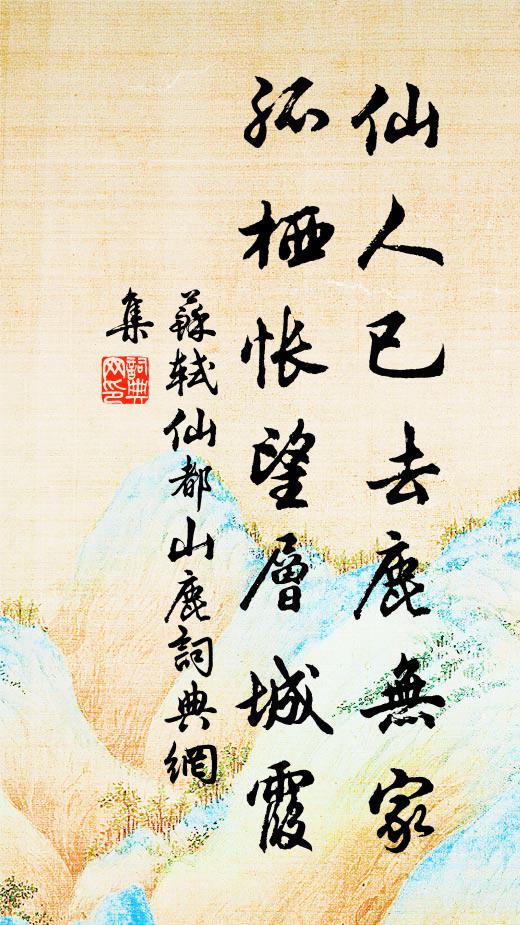 仙人已去鹿無家
孤栖悵望層城霞
蘇軾仙都山鹿詞典網
集
詞典
网印